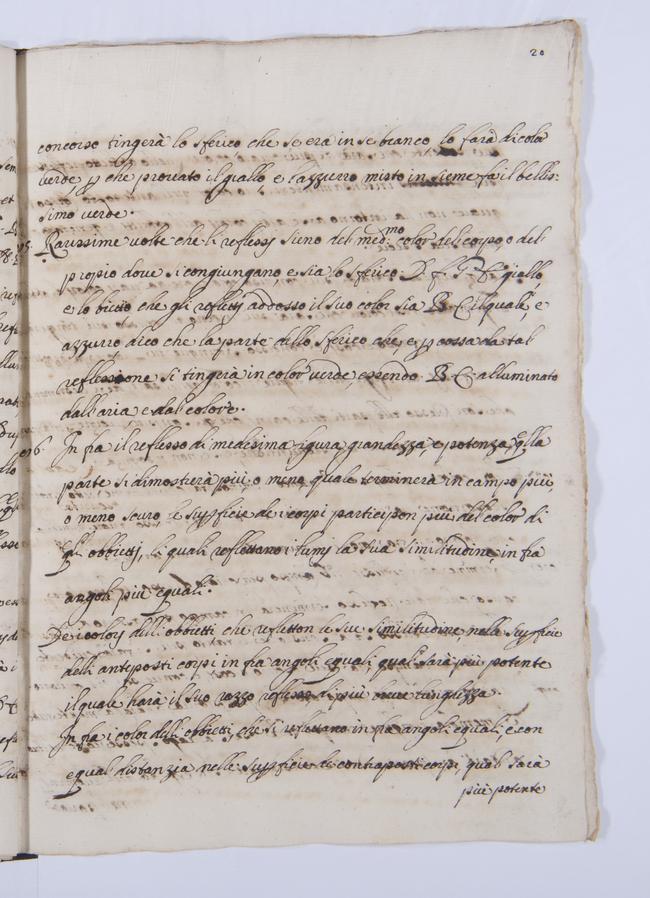 20
concorso tingerà lo sferico che se era in se bianco lo farà di color
verde p che provato il giallo, e l'azzurro misto in sieme fa il bellis:
simo verde.
95. Rarissime volte che li reflessi sieno del med:mo color del corpo, o del
propio dove si congiungano, e sia lo sferico D. f. G. E. giallo
e lo obietto che gli reflette addosso il suo color sia B. C. il quale, e
azzurro dico che la parte dello sferico che, e percossa da tal
reflessione si tingerà in color verde essendo B. C. alluminato
dall'aria e dal colore.
96. In fra il reflesso di medesima figura grandezza, e potenza qlla
parte si dimosterà più, o meno quale terminerà in campo più,
o meno scuro, le suppficie de i corpi participon più del color di
qlli obbietti, li quali reflettano i lumi la sua similitudine in fra
angoli più equali.
De i colori delli obbietti che refletton le sue similitudine nella suppficie
delli anteposti corpi in fra angoli equali qual sarà più potente
il quale harà il suo razzo reflesso di più breve lunghezza.
In fra i color delli obbietti, che si reflettano in fra angoli equali, e con
equal distanzia nelle suppficie de contraposti corpi, qual sarà
più potente